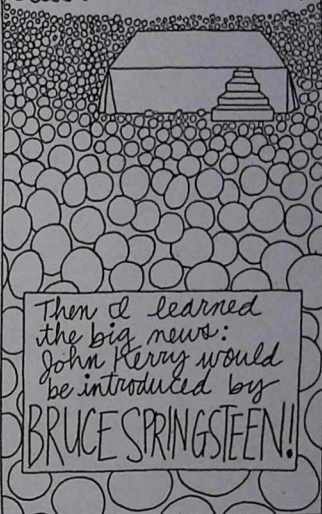 Then I learned
the big news:
John Kerry would
be introduced by
BRUCE SPRINGSTEEN!